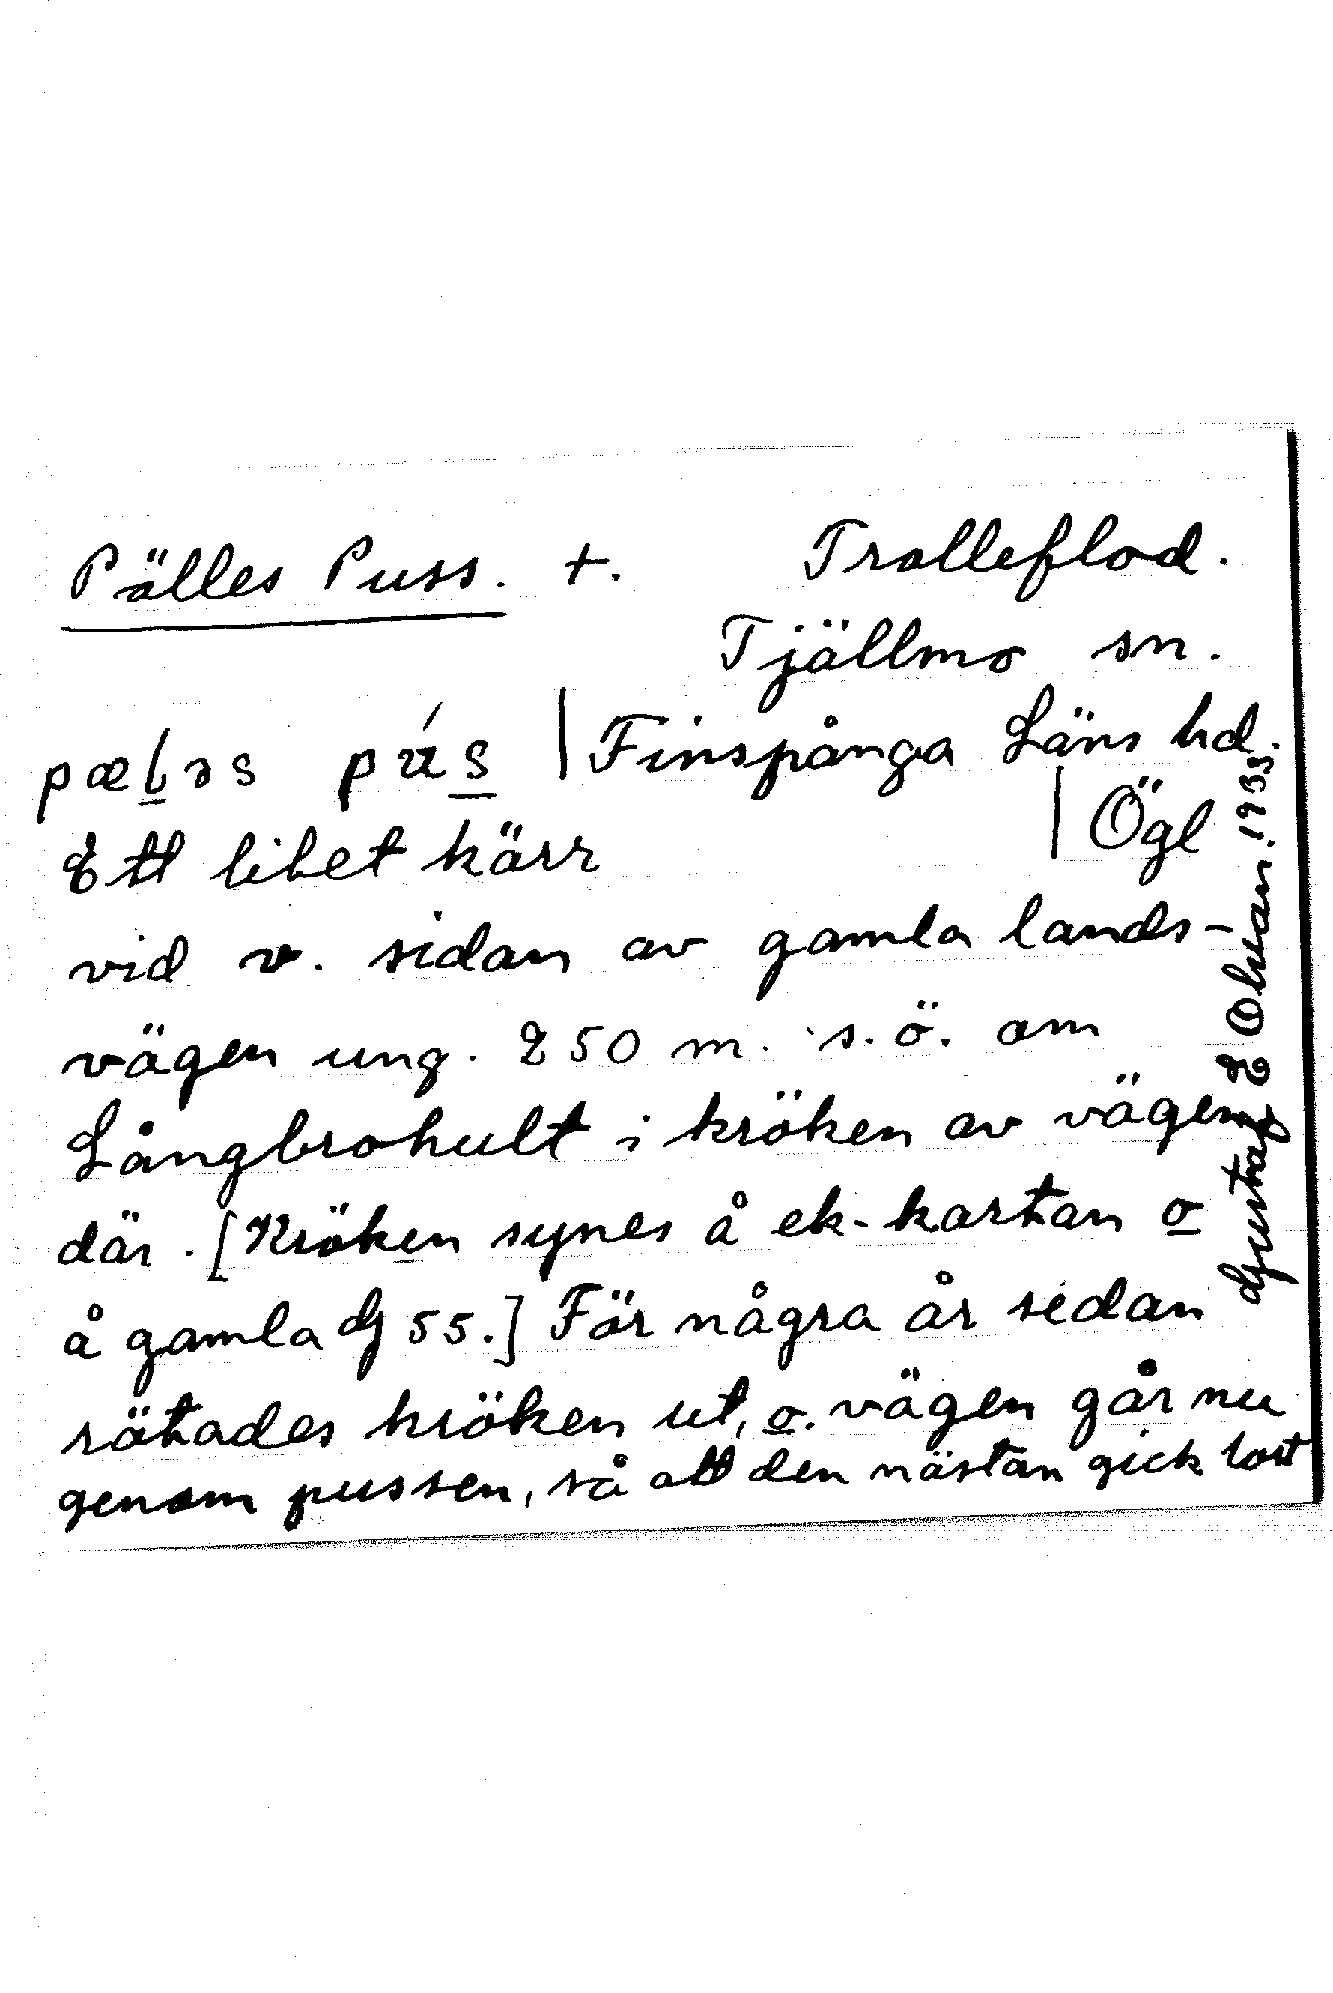 Pälles Puss. +. Trolleflod.
Tjällmo sn.
pæləs pús | Finspånga Läns hd.
Ett litet kärr | Ögl
vid v. sidan av gamla lands-
vägen ung. 250 m. s.ö. om
Långbrohult i kröken av vägen
där. [Kröken synes å ek-kartan o
å gamla G 55.] För några år sedan
rätades kröken ut, o. vägen går nu
genom pussen, så att den nästan gick bort
Gustaf E Olsson. 1933